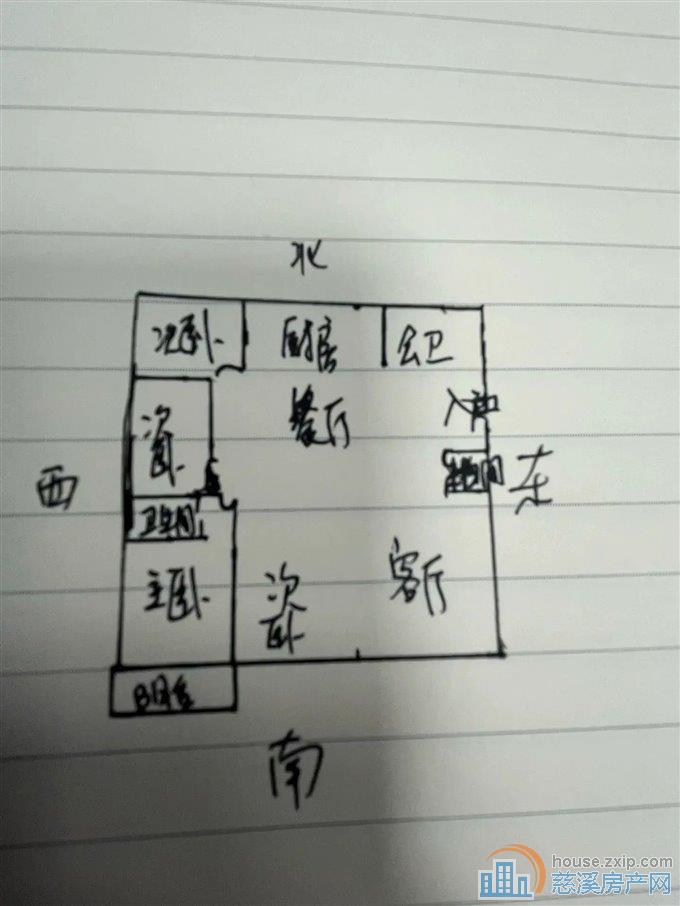 北
次卧
厨房
公卫
餐厅
入户
次卧
西
东
卫生间
主卧
次卧
客厅
阳台
南
house.zxip.com
慈溪房产网